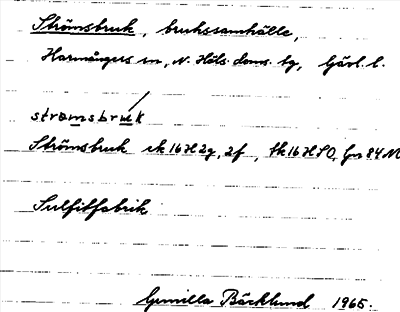 Strömsbruk, brukssamhälle,
Harmångers sn, N. Häls. doms. tg, Gävl. l.
stromsbruk
Strömsbruk ek 16H2g, 2f, tk 16H SO, Gs 84 M
Sulfitfabrik
Gunilla Bäcklund 1965.